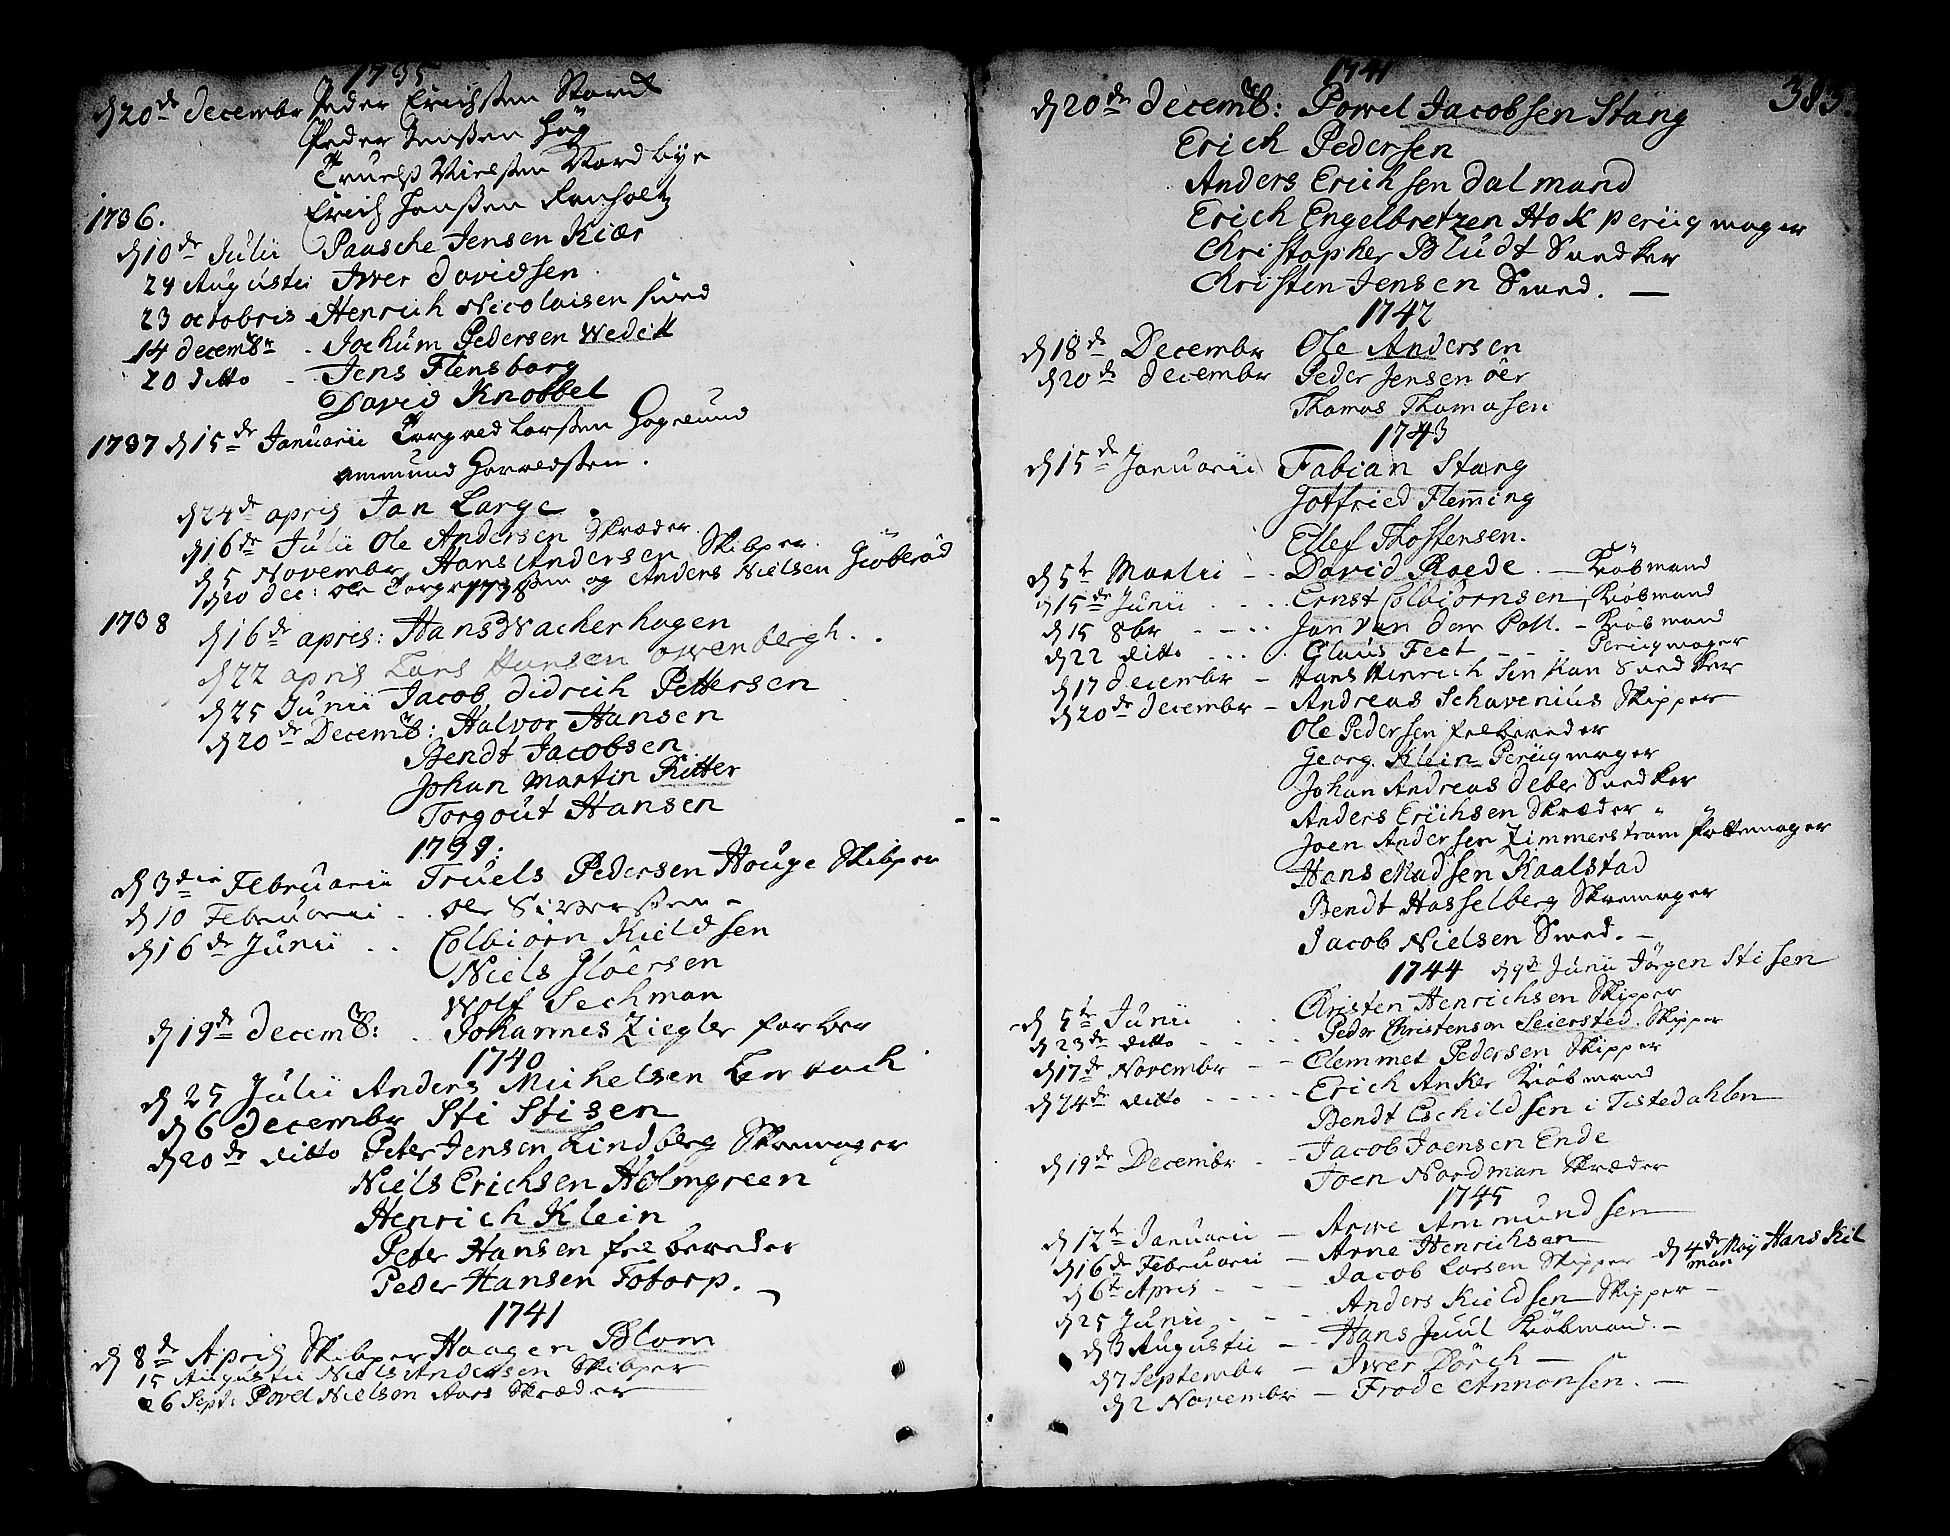 1735
d 20de decembr Peder Erichsen Stordt
Peder Jensen Høg
Truels Nielsen Nordbye
Erich Jansen Ranholtz
1736.
d 10de Julii Paasche Jensen Kiær
24 Augustii Iwer Davidsen
23 octobris Henrich Nicolaisen smed
14 decembr. Jochum Pedersen Wedell
20 ditto - Jens Flensborg
David Knobbel
1737 d 15de Januarii Torgved Larsen Hagelund
Ammund Harvedsen.
d 24de april Jan Large.
d 16de Julii Ole Andersen Skræder
d 5 Novembr. Hans Andersen Skibper.
d 20 dec: Ole og Anders Nielsen Giøberød
1738
1738
d 16de april: Hans Wacherhagen
d 22 april Lars Hansen Owenbergh.
d 25 Junii Jacob Didrich Pettersen
d 20de Decemb: Halvor Hansen
Bendt Jacobsen
Johan Martin Ritter
Torgout Hansen
1739:
d 3die Februarii Truels Pedersen Houge Skibper
d 10 Februarii . . Ole Siversen -
d 16de Junii . . Colbiørn Kieldsen
Niels Iloersen
Wolf Sechman
d 19de decemb: . Johannes Ziegler farber
1740
d 25 Julii Anders Michelsen Lerbach
d 6 decembr Sti Stisen
d 20de ditto Peter Jensen Lindberg Skoemager
Niels Erichsen Holmgreen
Henrich Klein
Peter Hansen felbereder
Peder Hansen Totorp.
1741
d 8de April Skibper Haagen Blom
15 Augustii Niels Andersen Skibper
26 Sept: Povel Nielsen Aars Skræder
1741
383.
d 20de decemb: Powel Jacobsen Stang
Erich Pedersen
Anders Erichsen dalmand
Erich Engelbretzen Hok periiqmager
Christopher Bludt Snedker
Christen Jensen Smed. -
1742
d 18de Decembr Ole Andersen
d 20de decembr Peder Jensen öer
Thomas Thomasen
1743
d 15de Januarii Fabian Stang
Gotfried Fleming
Ellef Thostensen.
d 5te Martii - . David Roede. - Kiöbmand
d 15de Junii . . . Ernst Colbiørnsen, Kiöbmand
d 15 8br - - - . . Jan van der Poll. - Kiöbmand
d 22 ditto . . . . Claus Feet - - . Periiqmager
d 17 decembr - Hans Hinrich Sinkan Snedker
d 20de decembr - Andreas Schavenius Skipper
Ole Pedersen felbereder
Georg. Klein Periiqmager
Johan Andreas Deber Snedker
Anders Erichsen Skræder
Joen Andersen Zimmerstrøm Pottemager
Hans Madsen Kaalstad
Bendt Hasselberg Skoemager
Jacob Nielsen Smed. -
1744 d 9de Junii Jörgen Stisen
d 5te Junii . . Christen Henrichsen Skipper
d 23de ditto . . . . . Peder Christensen Seiersted. Skipper
d 17de Novembr - - Clemmet Pedersen Skipper
d 24de ditto - - - - - Erich Anker Kiöbmand
Bendt Eschildsen i Tistedahlen
d 19de Decembr - - Jacob Joensen Ende
Joen Nordman Skræder
1745
d 12te Januarii - Arwe Ammundsen
d 16de Februarii - Arne Henrichsen
d 6te April - - - Jacob Larsen Skipper - d 4de Maÿ Hans Kil
man
d 25 Junii . - - Anders Kieldsen Skipper -
d 3 Augustii - - Hans Juul Kiöbmand. -
d 7 Septembr - Iwer Dörch -
d 2 Novembr - Frode Annonsen. -